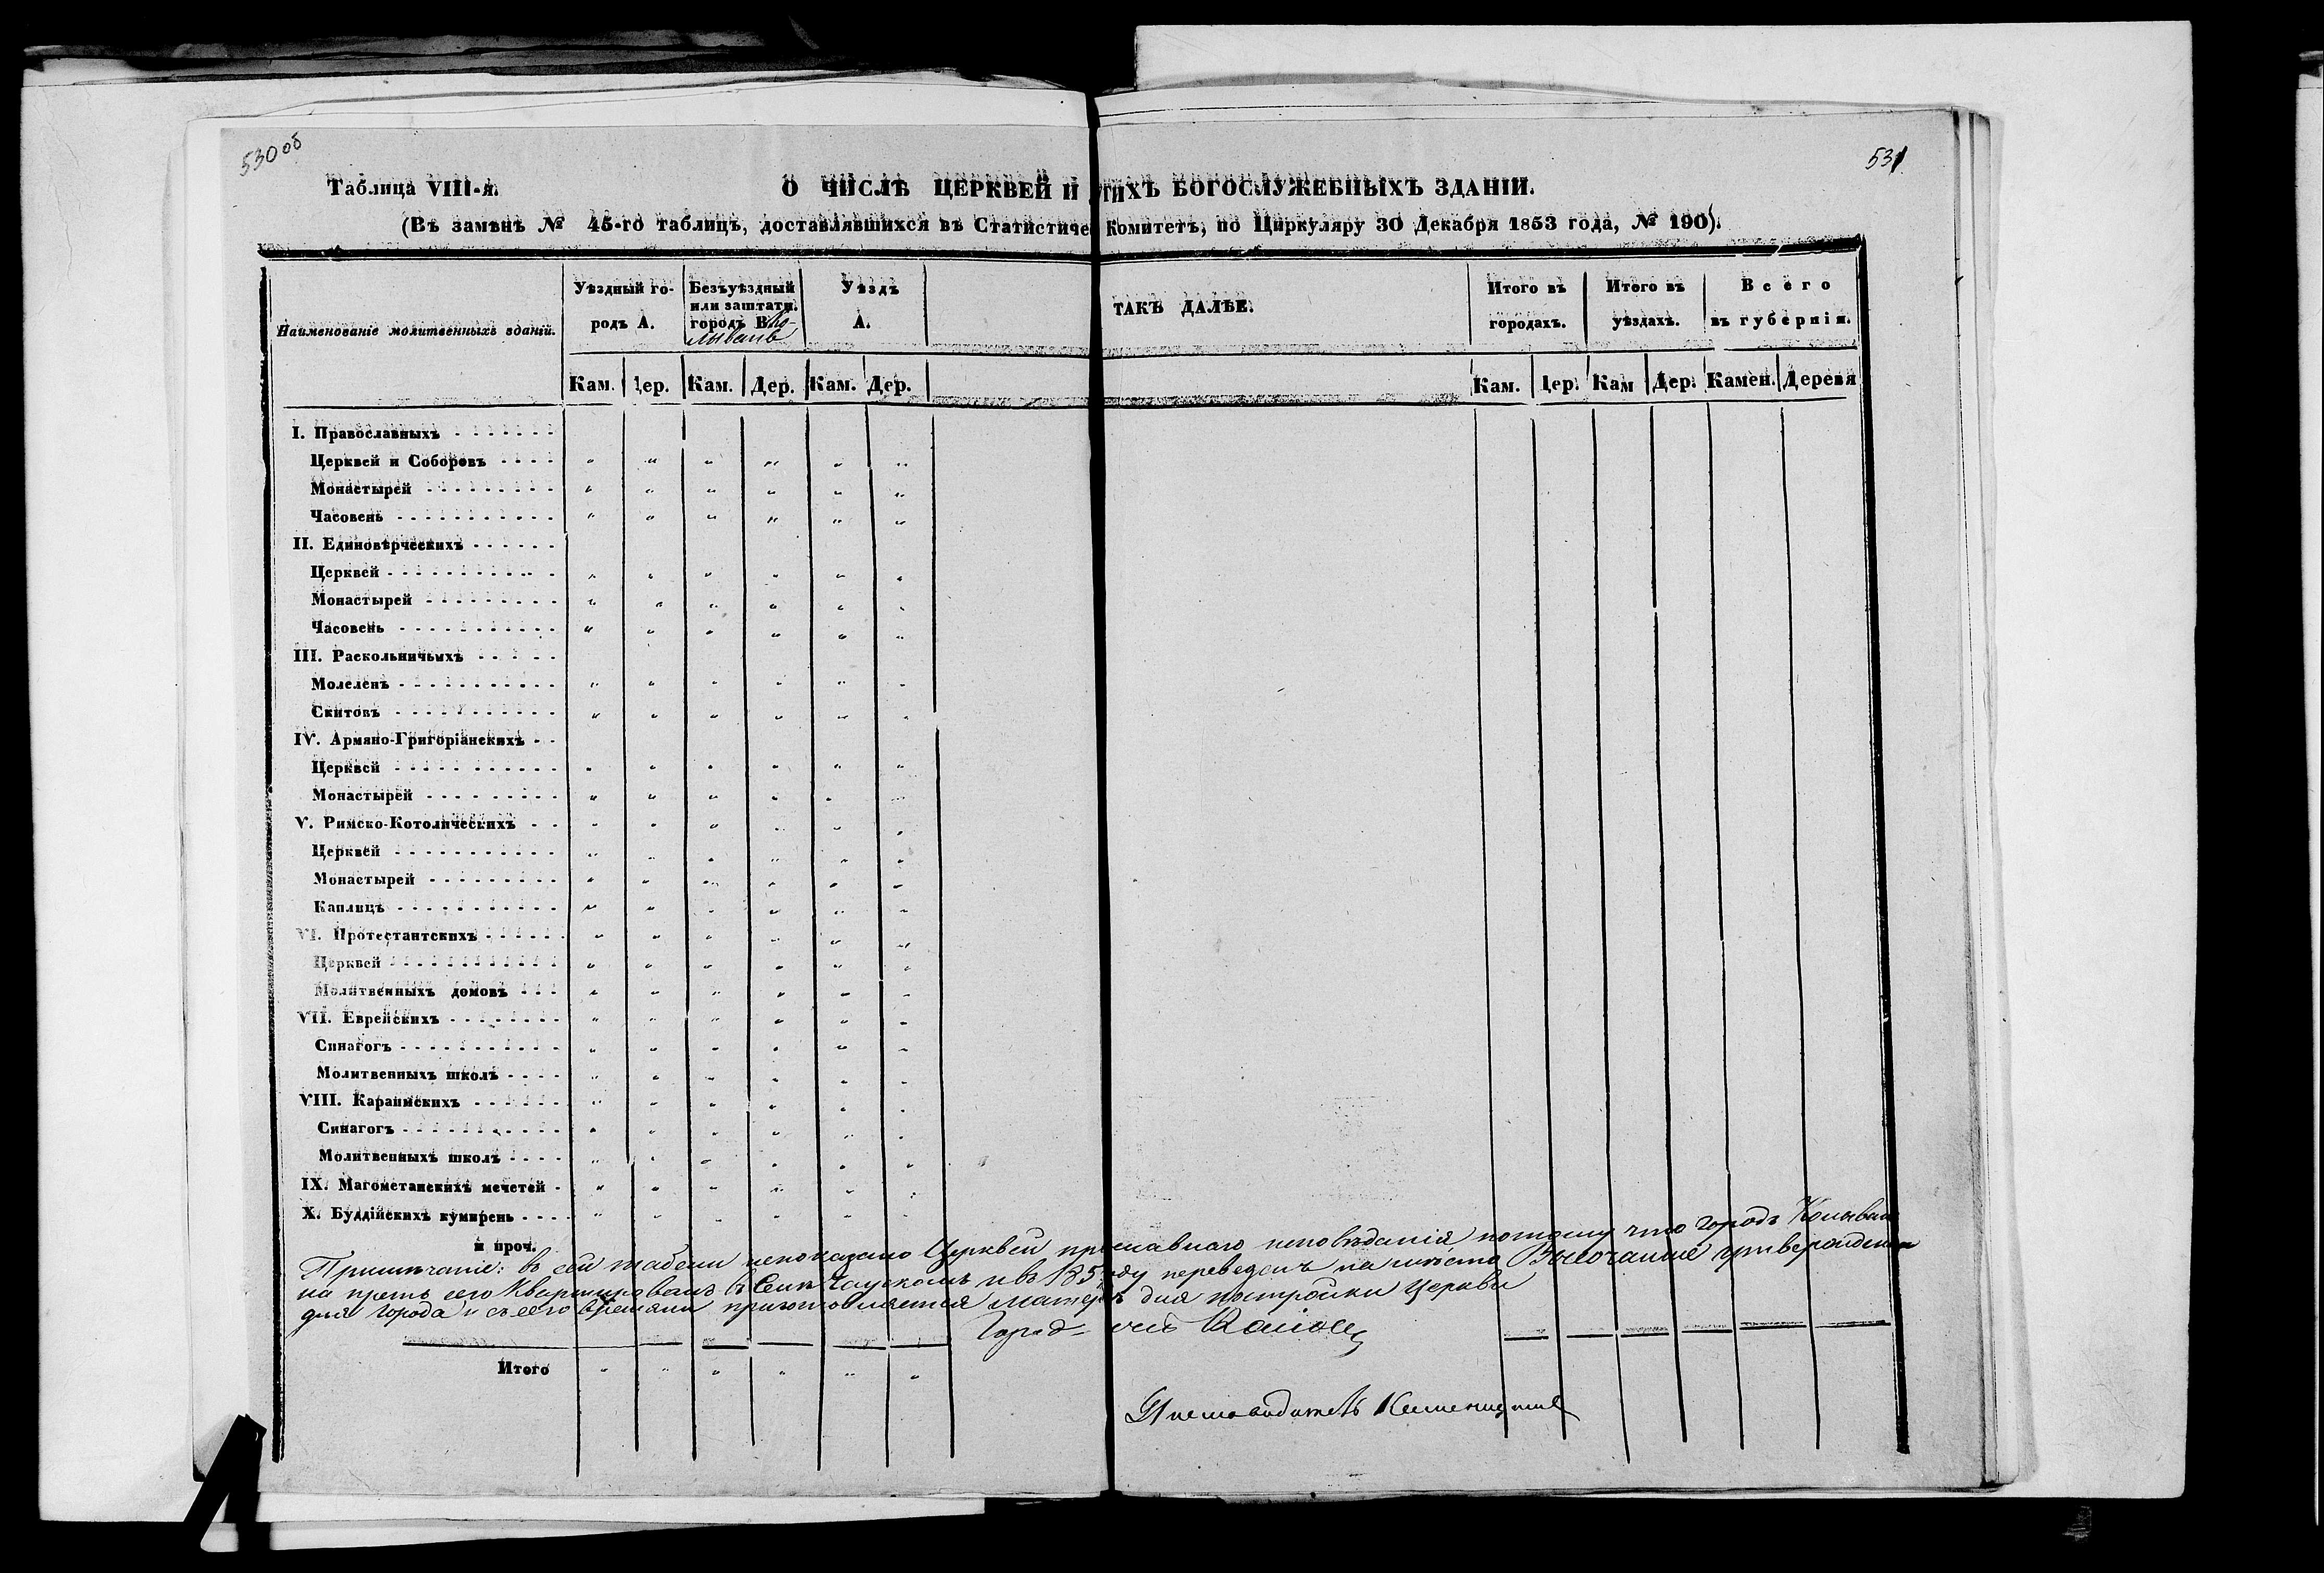 530 об
531
Таблица VIII-я. О ЧИСЛѢ ЦЕРКВЕЙ И ГИХЪ БОГОСЛУЖЕБНЫХЪ ЗДАНІЙ.
(Въ замѣнъ № 45-го таблицъ, доставлявшихся въ Статистиче Комитетъ, по Циркуляру 30 Декабря 1853 года, № 190).
Наименованіе молитвенныхъ зданій.
Уѣздный го-
родъ А.
Безъуѣздный
или заштатн.
городъ В. Ко-
лывань
Уѣздъ
А.
ТАКЪ ДАЛѢЕ.
Итого въ
городахъ.
Итого въ
уѣздахъ.
Всего
въ губерніи.
Кам. Дер. Кам. Дер. Кам. Дер. Кам. Дер. Кам Дер. Камен. Деревя
I. Православныхъ
Церквей и Соборовъ
Монастырей
Часовень
II. Единовѣрческихъ
Церквей
Монастырей
Часовень
III. Раскольничьихъ
Молеленъ
Скитовъ
IV. Армяно-Григоріанскихъ
Церквей
Монастырей
V. Римско-Котолическихъ
Церквей
Монастырей
Каплицъ
VI. Протестантскихъ
Церквей
Молитвенныхъ домовъ
VII. Еврейскихъ
Синагогъ
Молитвенныхъ школъ
VIII. Караимскихъ
Синагогъ
Молитвенныхъ школъ
IX. Магометанскихъ мечетей
X. Буддійскихъ кумирень
и проч.
Примѣчаніе: въ сей табели непоказано Церквей православнаго исповѣданія потому что городъ Колывань
на предъ сего Квартировалъ въ Селѣ Чаускомъ и въ 185 оду переведенъ на мѣсто Высочайше утвержденное
для города и съ сего времени приготовляется матер для постройки Церкви
Город чій
Итого
Письмоводитель